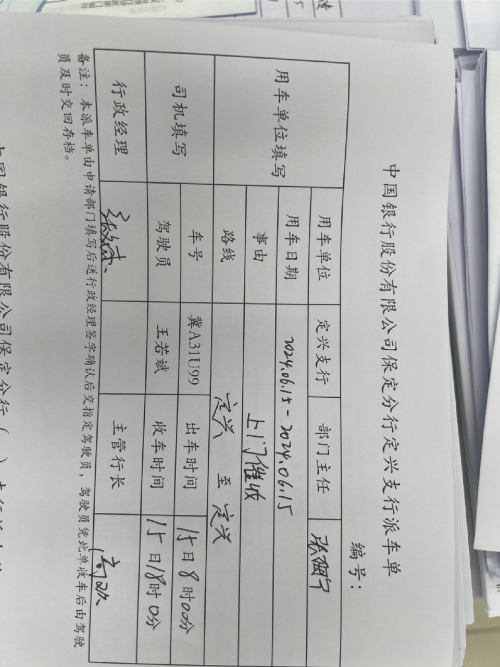 中国银行股份有限公司保定分行定兴支行派车单
编号：
用车单位填写 用车单位 定兴支行 部门主任
用车日期 2024.06.15-2024.06.15
事由 上门催收
路线 定兴 至 定兴
司机填写 车号 冀A31U99 出车时间 15日8时00分
驾驶员 王若斌 收车时间 15日18时0分
行政经理 主管行长
备注：本派车单由申请部门填写后送行政经理签字确认后交指定驾驶员，驾驶员凭此单收车后由驾驶
员及时交回存档。
中国银行股份有限公司保定分行（